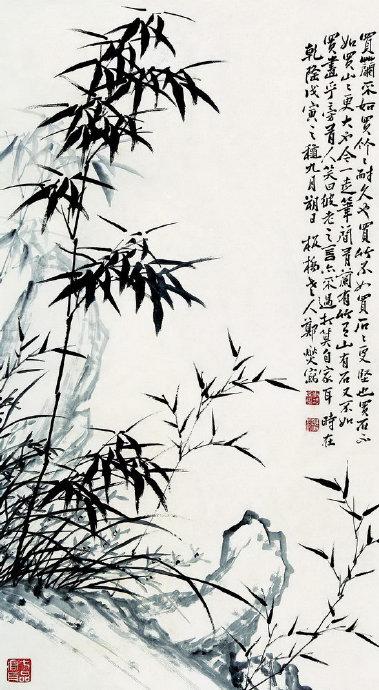 買蘭不如買竹竹之耐久也買竹不如買石石之更堅也買石不
如買山山之更大也今一走筆間有蘭有竹有山有石又不如
買畫乎旁有人笑曰彼老之言亦不過打算自家耳時在
乾隆戊寅之種九月朔日板橋老人鄭燮寫